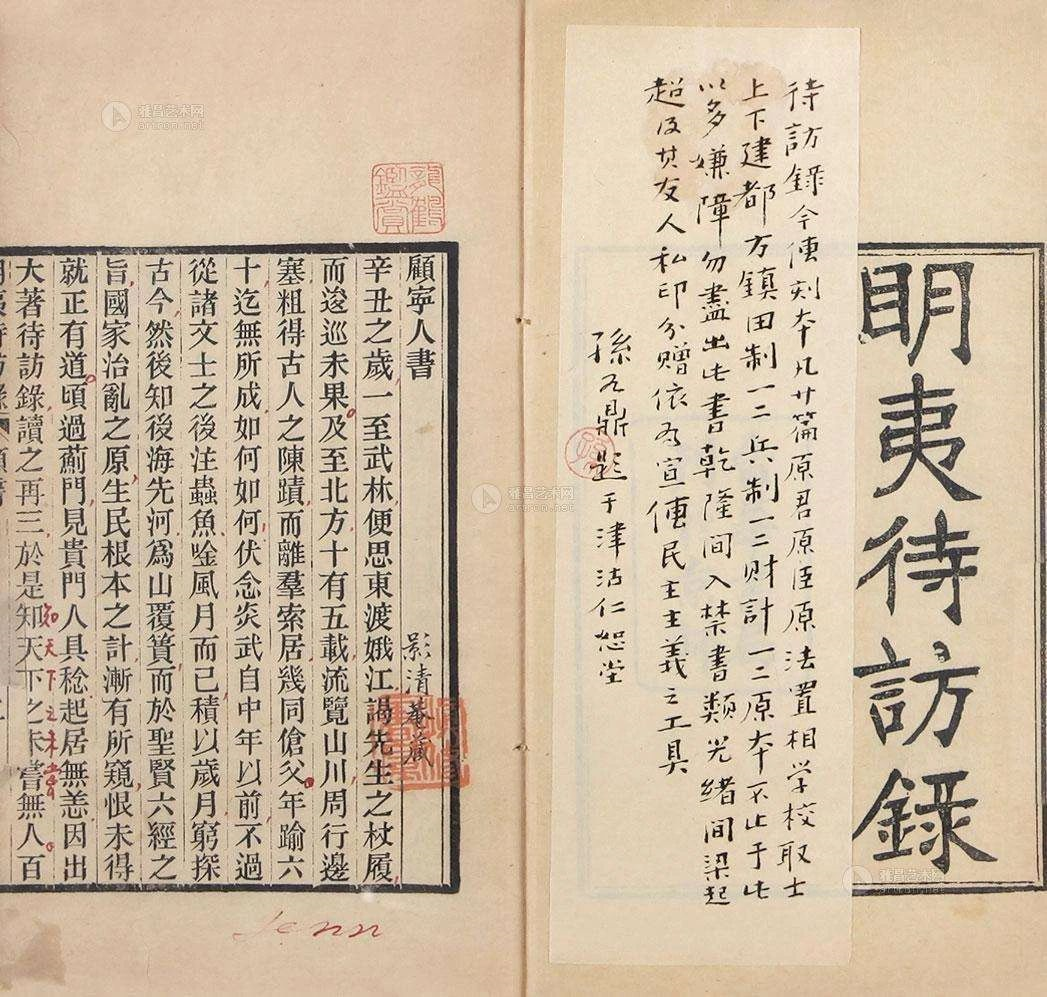 明夷待訪錄
待訪錄今傳刻本凡廿篇原君原臣原法置相学校取士
上下建都方鎮田制一二兵制一二财計一二原本不止于此
以多嫌障勿盡出此書乾隆間入禁書類光緒間梁起
超及其友人私印分贈依為宣傳民主主義之工具
孫 鼎題于津沽仁恕堂
顧寧人書
影清菴藏
辛丑之歲一至武林便思東渡娥江謁先生之杖履
而逡巡未果及至北方十有五載流覽山川周行邊
塞粗得古人之陳蹟而離羣索居幾同傖父年踰六
十迄無所成如何如何伏念炎武自中年以前不過
從諸文士之後注蟲魚唫風月而已積以歲月窮探
古今然後知後海先河為山覆簣而於聖賢六經之
旨國家治亂之原生民根本之計漸有所窺恨未得
就正有道頃過薊門見貴門人具稔起居無恙因出
大著待訪錄讀之再三於是知天下之未嘗無人百
知天下之未嘗
龍鶴鑑賞
Jenn
雅昌艺术网
artron.net
雅昌艺术网
artron.net
雅昌艺术网
artron.net